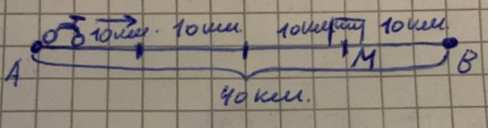 10 км. 10 км. 10 км 10 км.
A M B
40 км.